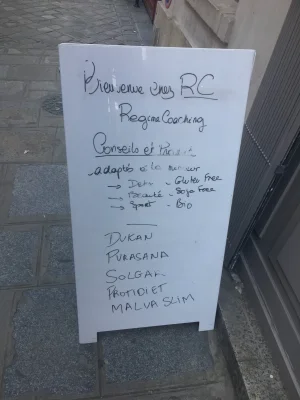 Bienvenue chez RC
Regime Coaching
Conseils et
adaptés à la
→ - Gluten Free
→ Beauté - Soja Free
→ Sport - Bio
DUKAN
PURASANA
SOLGAR
PROTIDIET
MALVA SLIM